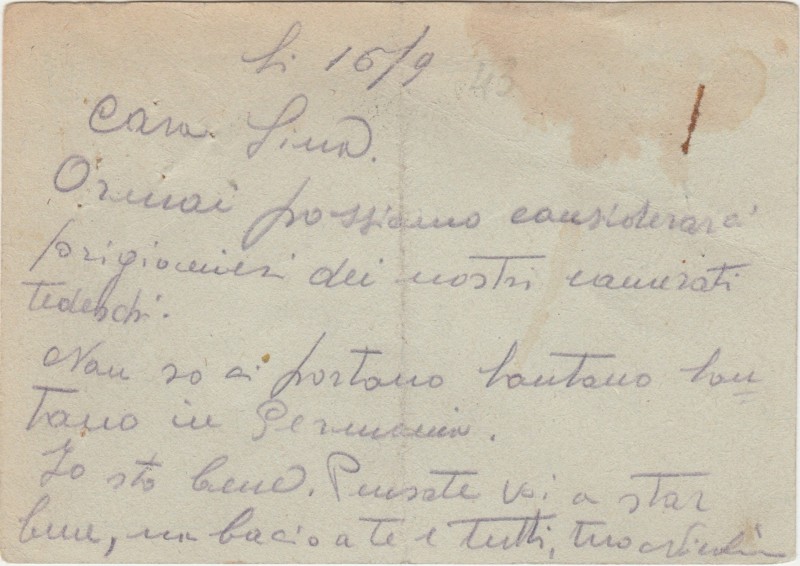 Li 16/9 43
Cara Lina.
Ormai possiamo considerarci
prigionieri dei nostri camerati
tedeschi.
Non so ci portano lontano lon=
tano in Germania.
Io sto bene. Pensate voi a star
bene, un bacio a te e tutti, tuo